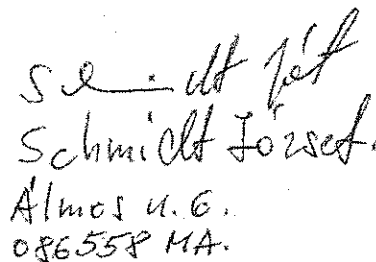 Schmidt Jó
Schmidt József.
Álmos u. 6.
086558 MA.